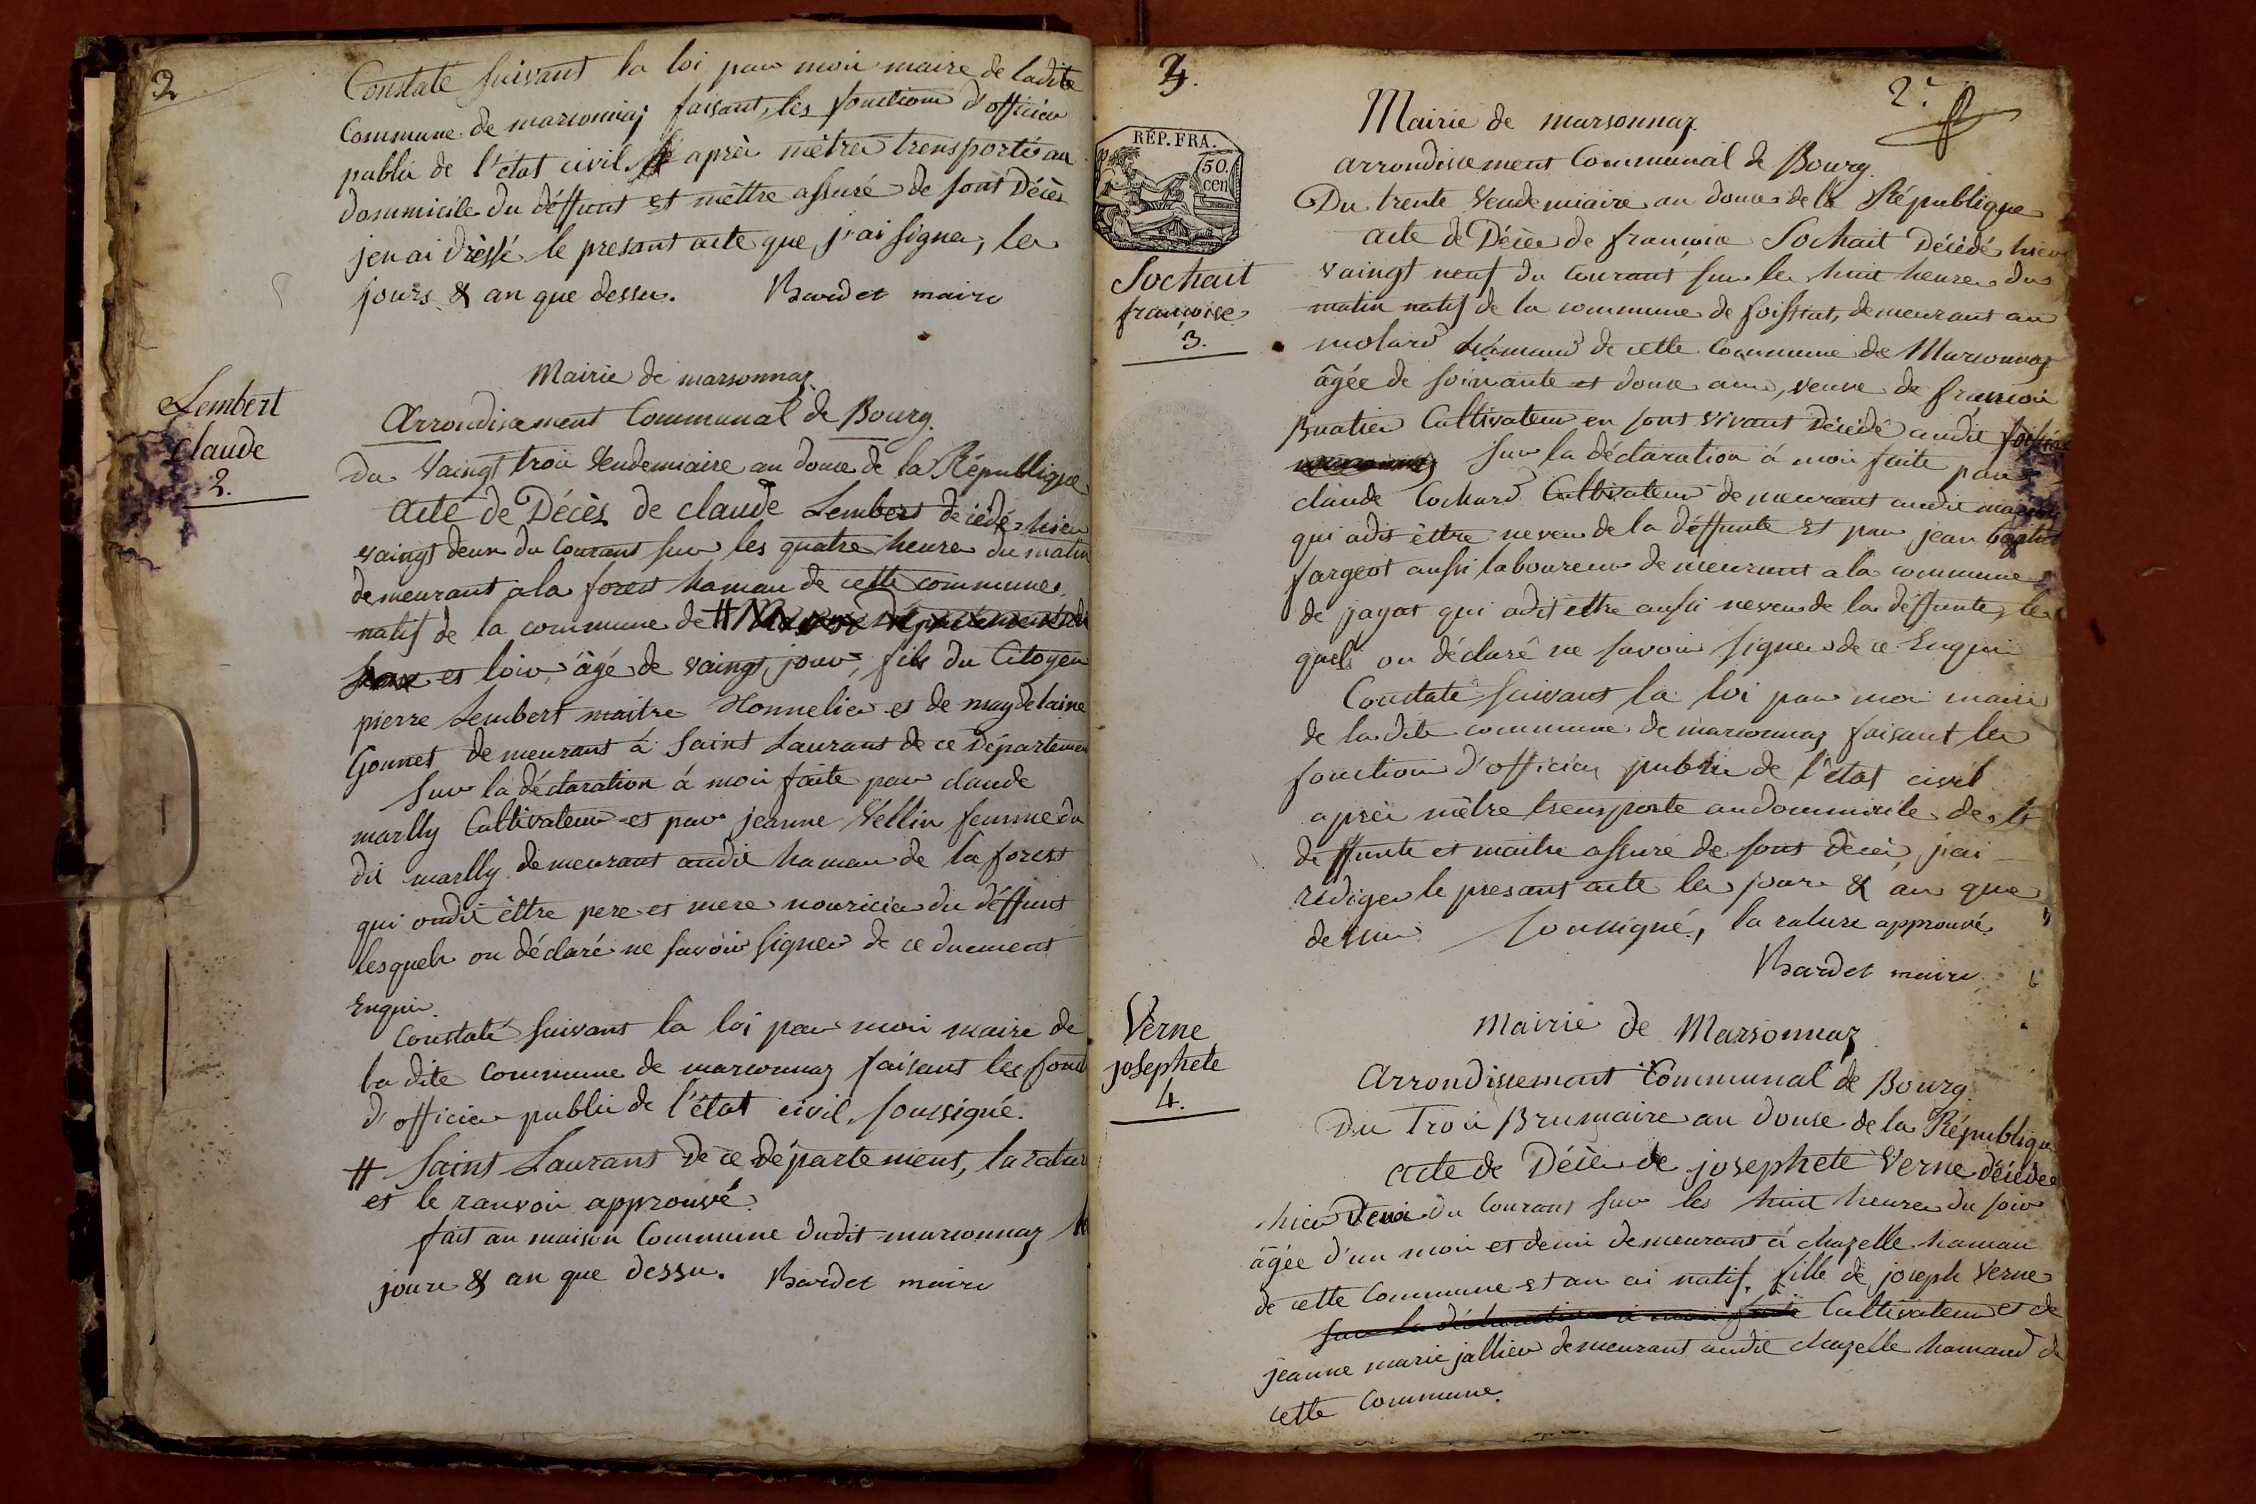 2
Constaté suivant la loi par moi maire de ladite
Commune de marsonnaz faisant les fonctions d'officier
public de l'état civil après mètre transporté au
dommicile du déffunt et mèttre assuré de sont Décès
jen ai dressé le presant acte que j'ai signer, les
jours & an que dessu. Bardet maire
Lembert
claude
2.
Mairie de marsonnaz
Arrondisement Communal de Bourg.
Du vaingt troi Vendemiaire an douse de la République
Acte de Décès de claude Lembert décédé hier
vaingt deux du Courant sur les quatre heure du matin
demeurant a la forest hamau de cette commune
natif de la commune de #
et loir âgé de vaingt jour, fils du Citoyen
pierre Lembert maitre Honnelier et de magdelaine
Gonnet demeurant á Saint Laurant de ce Départemen
sur la déclaration á moi faite par claude
marlly Cultivateur et par jeanne Vellin femme du
dit marlly demeurant audit hamau de la forest
qui ondit èttre pere et mere nouricier du déffunt
lesquels on déclaré ne savoir signer de ce duement
Enquis.
Constaté suivant la loi par moi maire de
la dite commune de marsonnaz faisant les fonct
d'officier public de l'état civil, soussigné.
# Saint Laurant de ce département, la ratur
et le ranvoi approuvé.
fait au maison Commune dudit marsonnaz les
jour & an que dessu. Bardet maire
3.
2e
RÉP. FRA.
50.
cen
Sochait
françoise
3.
Mairie de marsonnaz
arrondissement Communal de Bourg
Du trente Vendemiaire an douse de la République
acte de Décès de françoise Sochait Décédé hier
vaingt neuf du courant sur les huit heure du
matin natif de la commune de foissiat, demeurant au
molard hamaud de cette Commune de Marsonnaz
âgée de soixante et douse ans, veuve de françoi
Buatier Cultivateur en sont vivant Décédé audit foissiat
sur la déclaration á moi faite par
claude Cochard Cultivateur demeurant audit
qui adit èttre neveu de la déffunte et par jean baptist
fargeot aussi laboureur demeurant a la commune
de jayat qui adit ettre aussi neveu de la déffunte, les
quels on déclaré ne savoir signer de ce Enquis
Constaté suivant la loi par moi maire
de la dite commune de marsonnaz faisant les
fonction d'officier public de l'état civil
aprèi mètre transporte au dommicile de la
deffunte et maitre assuré de sont décès, jai
rédiger le presant acte les jour & an que
dessu soussigné, la rature approuvé.
Bardet maire
Verne
josephete
4.
Mairie de Marsonnaz
Arrondissement Communal de Bourg.
Du Troi Brumaire an douse de la République
acte de Décès de josephete Verne décédée
hier deux du Courant sur les huit heure du soir
âgée d'un moi et demi demeurant á chazelle hamau
de cette Commune et an ai natif, fille de joseph Verne
sur la déclaration a moi faite Cultivateur et de
jeanne marie jallier demeurant audit chazelle hamaud de
cette Commune.